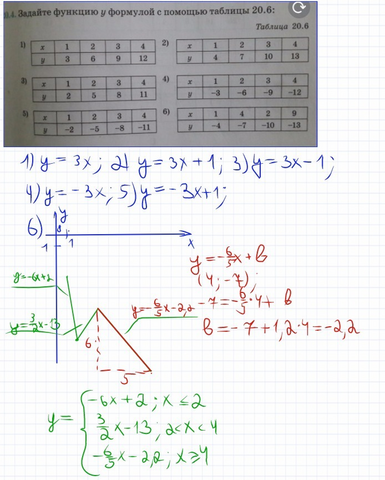 8.4. Задайте функцию y формулой с помощью таблицы 20.6:
Таблица 20.6
1) x 1 2 3 4
y 3 6 9 12
2) x 1 2 3 4
y 4 7 10 13
3) x 1 2 3 4
y 2 5 8 11
4) x 1 2 3 4
y −3 −6 −9 −12
5) x 1 2 3 4
y −2 −5 −8 −11
6) x 1 4 2 9
y −4 −7 −10 −13
1) y = 3x; 2) y = 3x + 1; 3) y = 3x − 1;
4) y = −3x; 5) y = −3x + 1;
6)
y
1
1
x
y = −6x + 2
y = 3/2 x − 13
y = −6/5 x − 2,2
6
5
y = −6/5 x + b
(4; −7);
−7 = −6/5 · 4 + b
b = −7 + 1,2·4 = −2,2
y = { −6x + 2; x ≤ 2
3/2 x − 13; 2 < x < 4
−6/5 x − 2,2; x ≥ 4